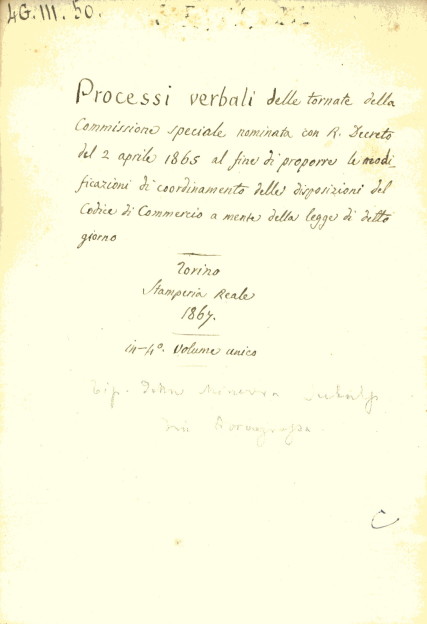 4G.III.50.
Processi verbali delle tornate della
Commissione speciale nominata con R. Decreto
del 2 aprile 1865 al fine di proporre le modi_
ficazioni di coordinamento delle disposizioni del
Codice di Commercio a mente della legge di detto
giorno
Torino
Stamperia Reale
1867.
in-4°. volume unico
Tip. della Minerva
C